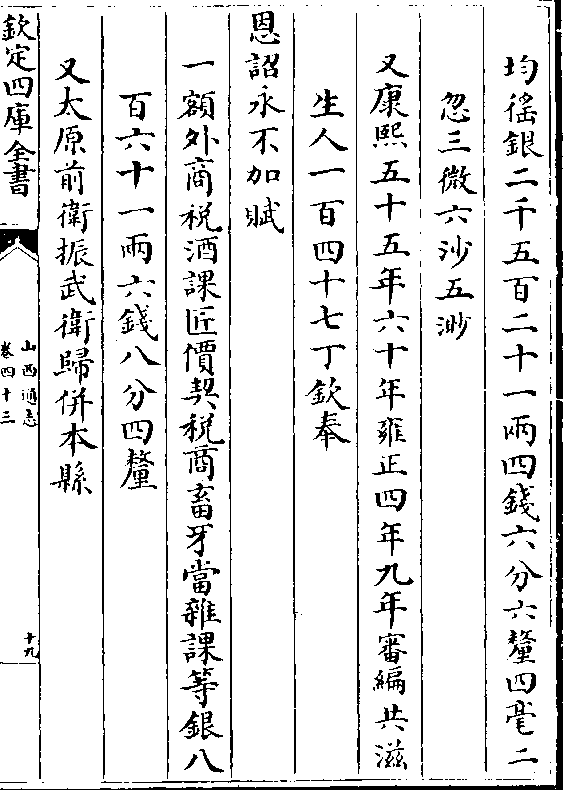 均徭銀二千五百二十一兩四錢六分六釐四毫二
忽三微六沙五渺
又康熙五十五年六十年雍正四年九年審編共滋
生人一百四十七丁欽奉
恩詔永不加賦
一額外商稅酒課匠價契稅商畜牙當雜課等銀八
百六十一兩六錢八分四釐
又太原前衛振武衛歸併本縣
欽定四庫全書
山西通志
卷四十三
十九